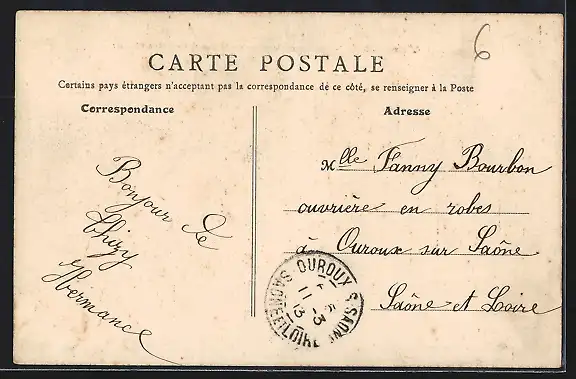 6
CARTE POSTALE
Certains pays étrangers n'acceptant pas la correspondance de ce côté, se renseigner à la Poste
Correspondance
Adresse
Bonjour de
Thizy
Hermance
Mlle Fanny Bourbon
ouvrière en robes
à Ouroux sur Saône
Saône et Loire
OUROUX S. SAONE
11-3
SAONE ET LOIRE